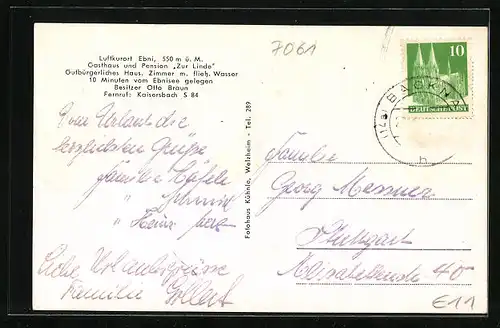 Luftkurort Ebni, 550 m ü. M.
Gasthaus und Pension „Zur Linde"
Gutbürgerliches Haus. Zimmer m. fließ. Wasser
10 Minuten vom Ebnisee gelegen
Besitzer Otto Braun
Fernruf: Kaisersbach S 84
7061
10
DEUTSCHE POST
BACKN
(14a)
h
Fotohaus Kühnle, Welzheim - Tel. 289
Vom Urlaub die
herzlichsten Grüße
Familie Häfele
" Schmid
" Heinz
Liebe Urlaubsgrüsse
Familie
Familie
Georg
Stuttgart
40
E11